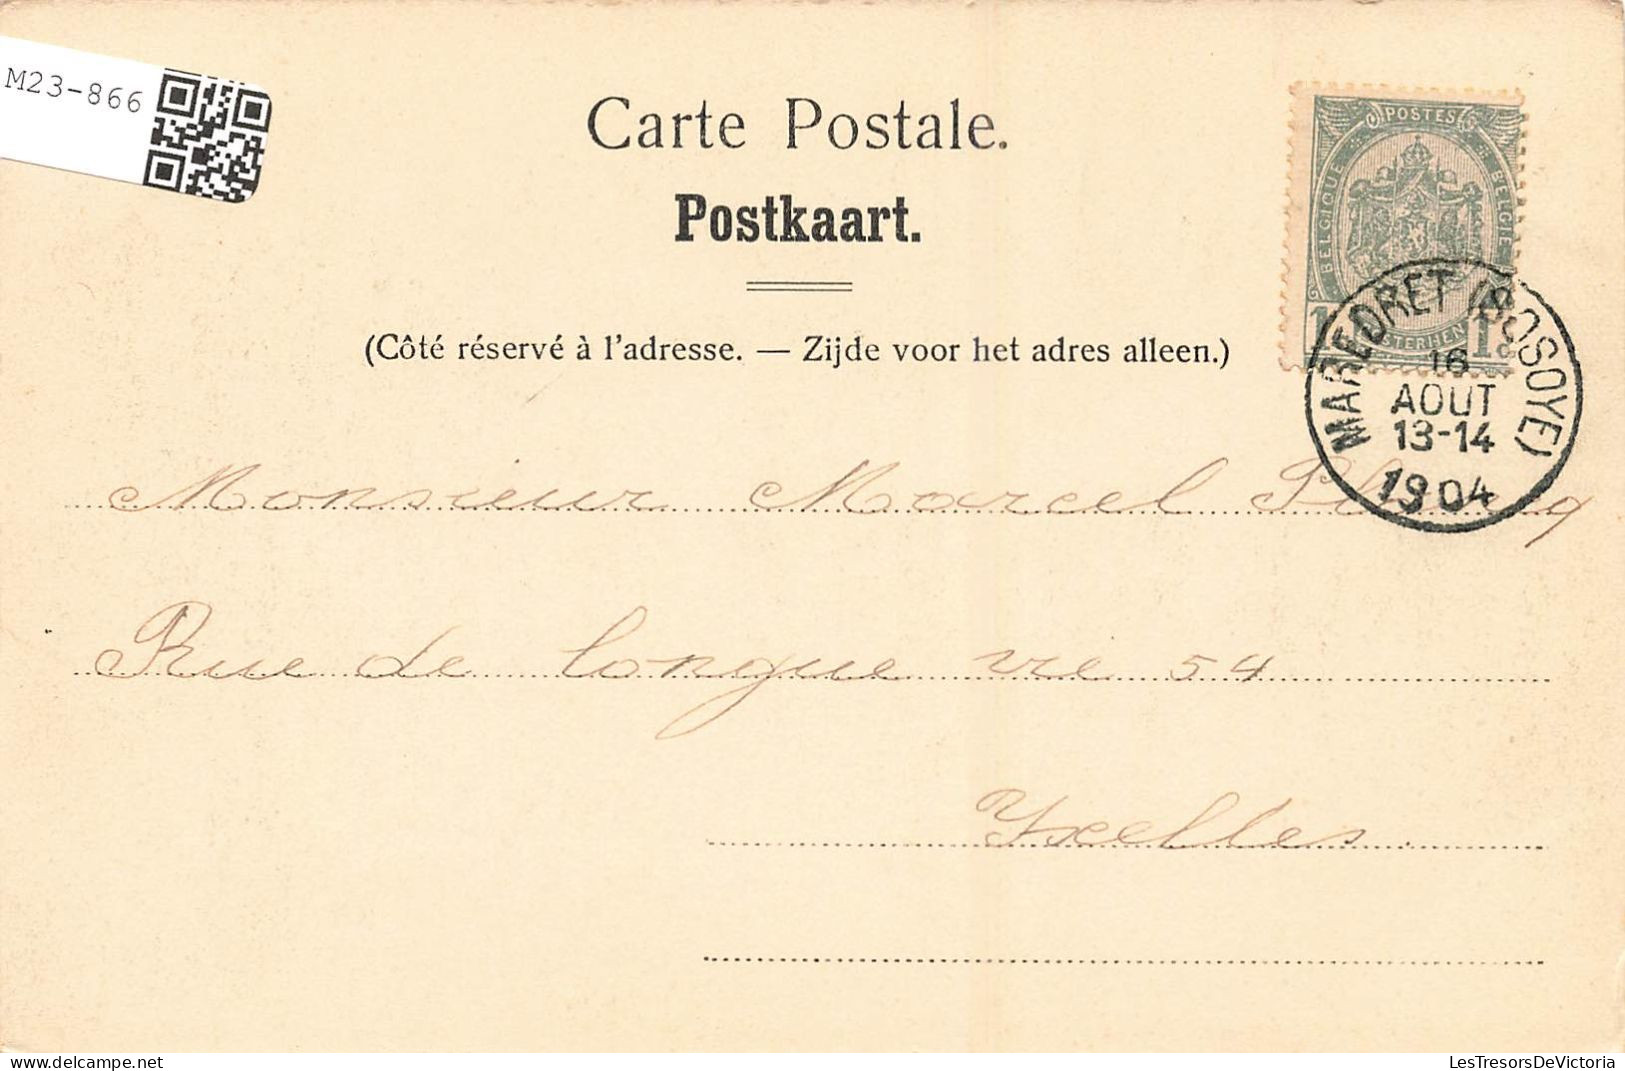 M23-866
Carte Postale.
Postkaart.
(Côté réservé à l'adresse. — Zijde voor het adres alleen.)
POSTES
BELGIQUE
BELGIË
1
1c
MAREDRET (SOSOYE)
16
AOUT
13-14
1904
Monsieur Marcel
Rue de longue vie 54
Ixelles
LesTresorsDeVictoria
delcampe.net